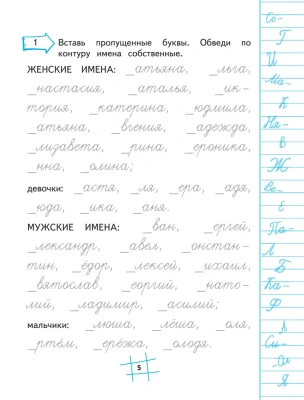 1 Вставь пропущенные буквы. Обведи по
контуру имена собственные.
ЖЕНСКИЕ ИМЕНА: _атьяна, _льга,
_настасия, _аталья, _ик-
тория, _катерина, _юдмила,
_атьяна, _вгения, _адежда,
_лизавета, _рина, _ероника,
_нна, _олина;
девочки: _астя, _ля, _ера, _адя,
_юда, _ика, _аня.
МУЖСКИЕ ИМЕНА: _ван, _ергей,
_лександр, _авел, _онстан-
тин, _ёдор, _лексей, _ихаил,
_вятослав, _еоргий, _нато-
лий, _ладимир, _асилий;
мальчики: _люша, _лёша, _оля,
_ртём, _ерёжа, _олодя.
5
Со-
Г
И
Ма-
К
Ня-
В
Ж
Ве-
Е
Па-
Л
Б
Ка-
Ф
А
Си-
Ол
Я